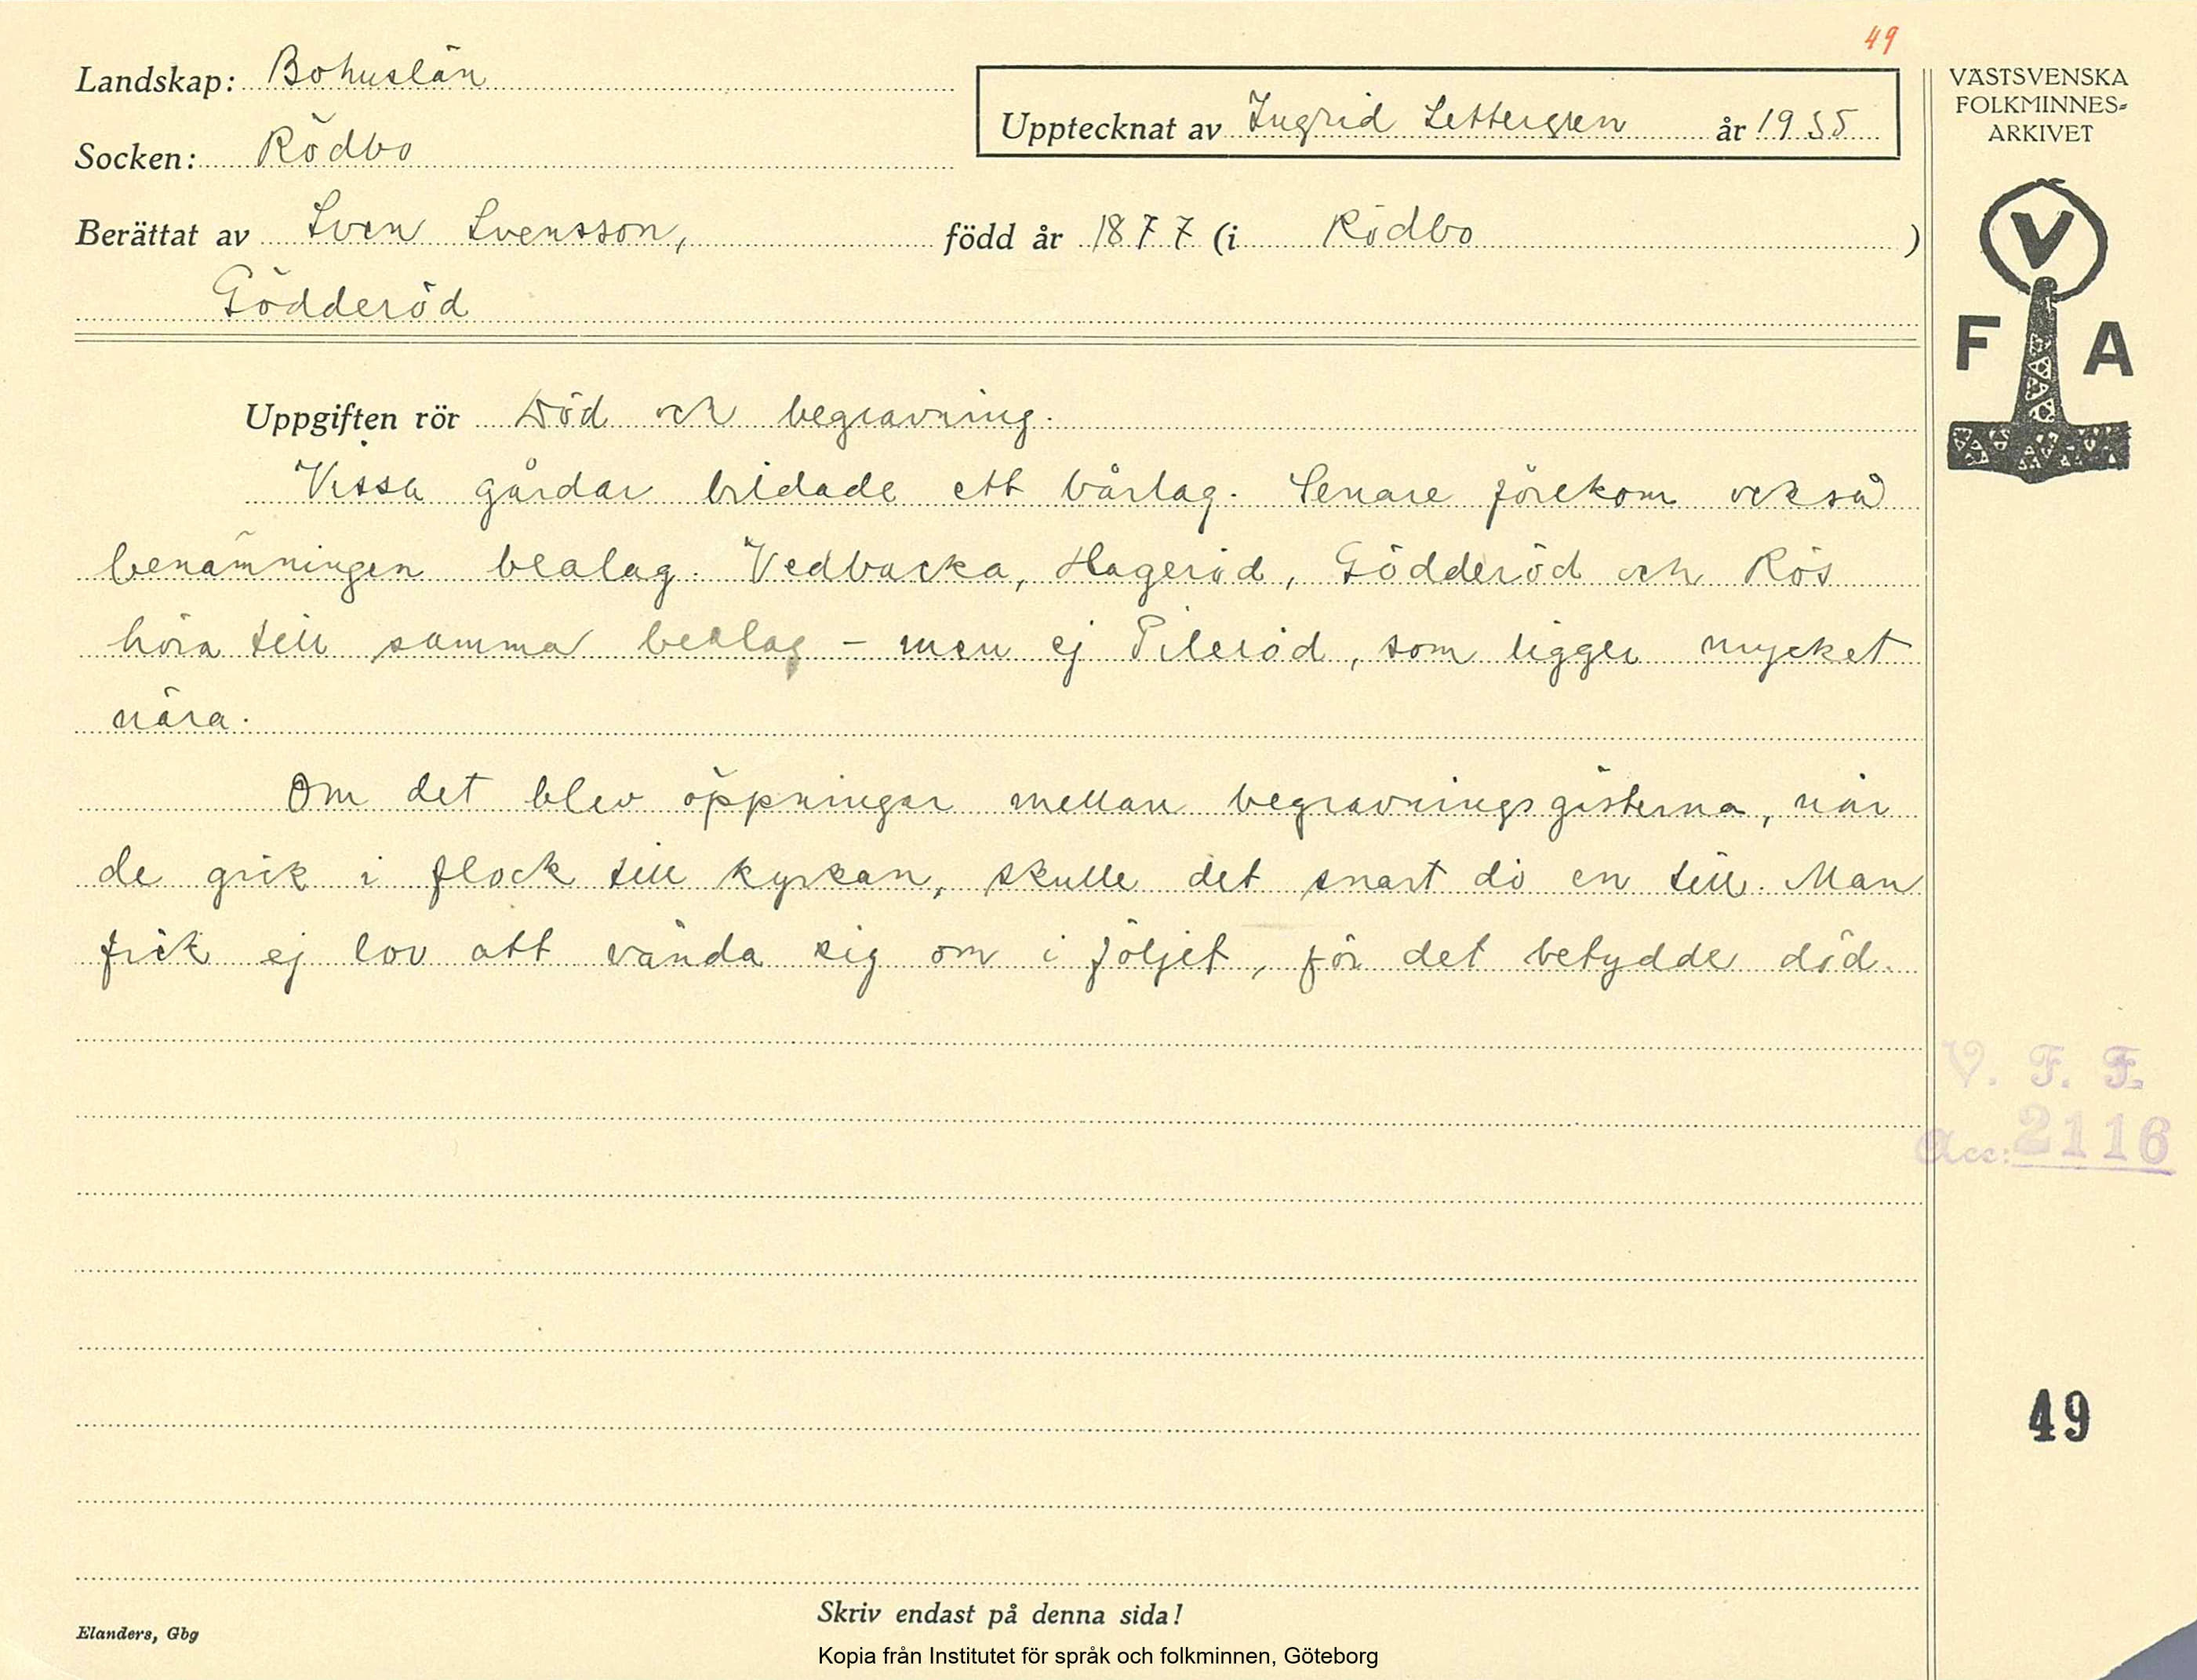 49
Landskap: Bohuslän
Upptecknat av Ingrid Settergren år 1955
VÄSTSVENSKA
FOLKMINNES-
ARKIVET
Socken: Rödbo
Berättat av Sven Svensson, född år 1877 (i Rödbo )
Gödderöd
V
F A
Uppgiften rör Död och begravning.
Vissa gårdar bildade ett bårlag. Senare förekom också
benämningen bealag. Vedbacka, Hageröd, Gödderöd och Rös
höra till samma bealag – men ej Pileröd, som ligger mycket
nära.
Om det blev öppningar mellan begravningsgästerna, när
de gick i flock till kyrkan, skulle det snart dö en till. Man
fick ej lov att vända sig om i följet, för det betydde död.
V. F. F.
Acc: 2116
49
Skriv endast på denna sida!
Elanders, Gbg
Kopia från Institutet för språk och folkminnen, Göteborg